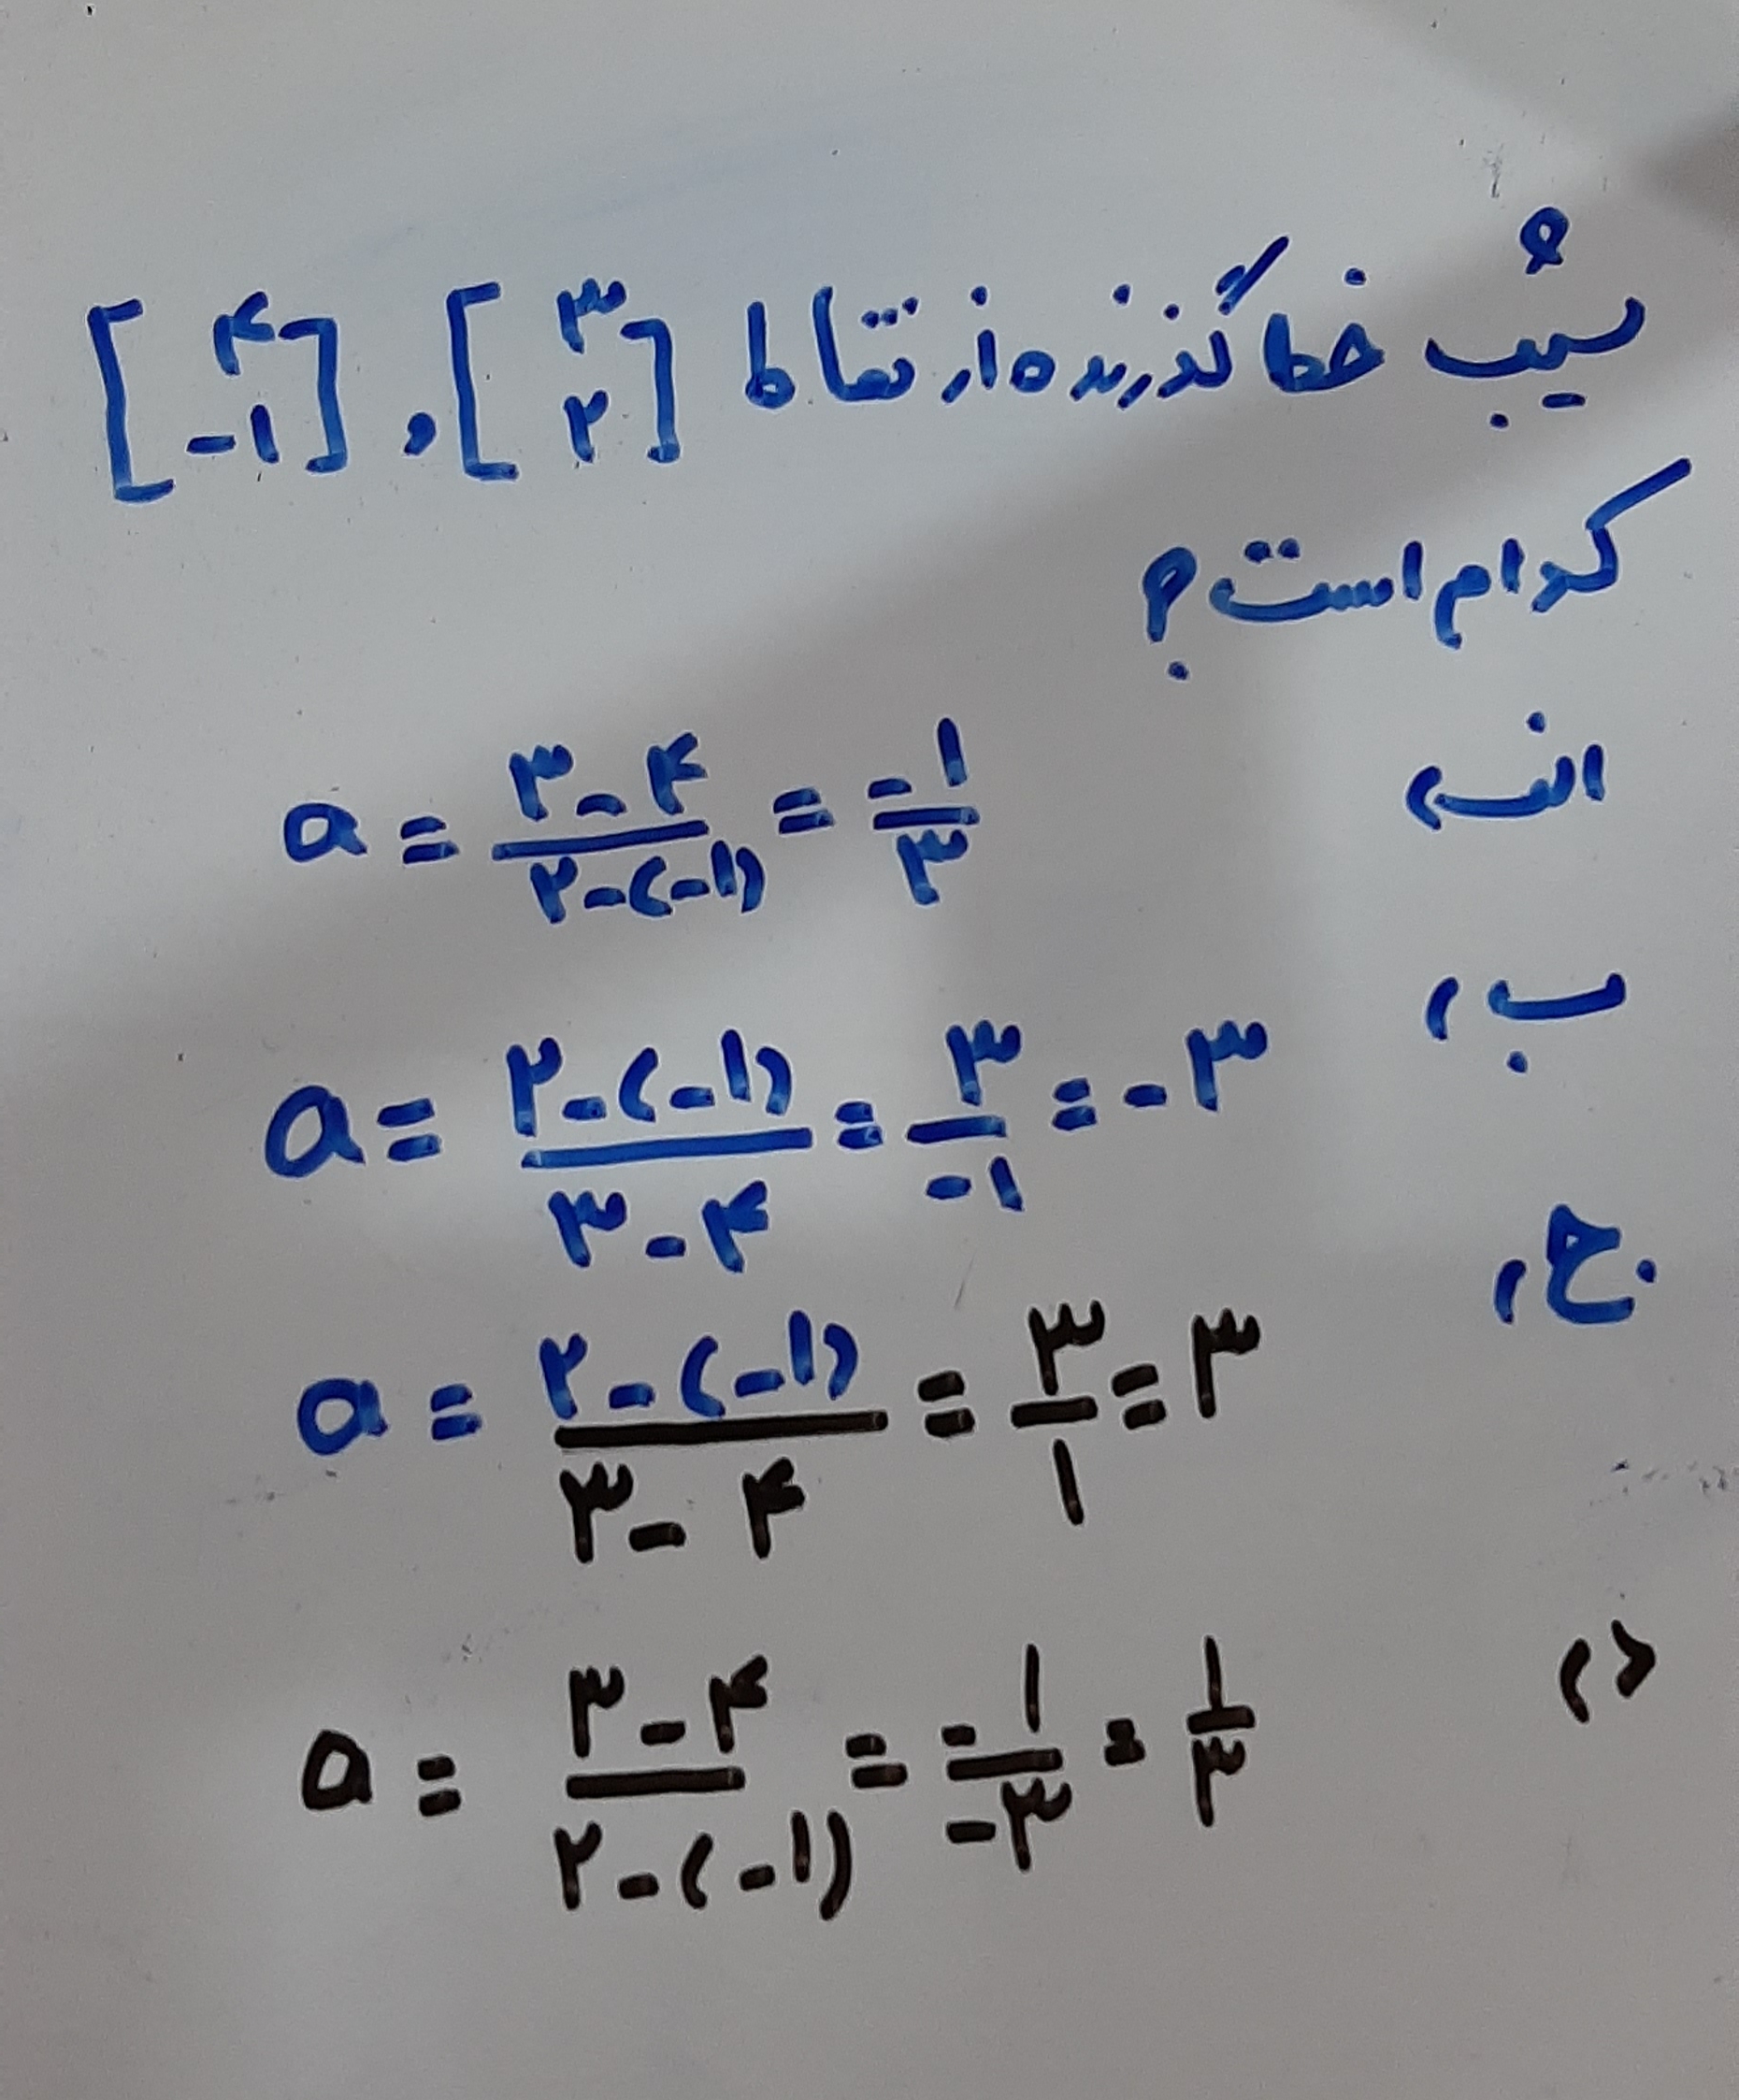 شیب خط گذرنده از نقاط [۳ ۲] , [۴ -۱]
کدام است؟
الف) a = (۳-۴)/(۲-(-۱)) = -۱/۳
ب) a = (۲-(-۱))/(۳-۴) = ۳/-۱ = -۳
ج) a = (۲-(-۱))/(۳-۴) = ۳/۱ = ۳
د) a = (۳-۴)/(۲-(-۱)) = -۱/-۳ = ۱/۳